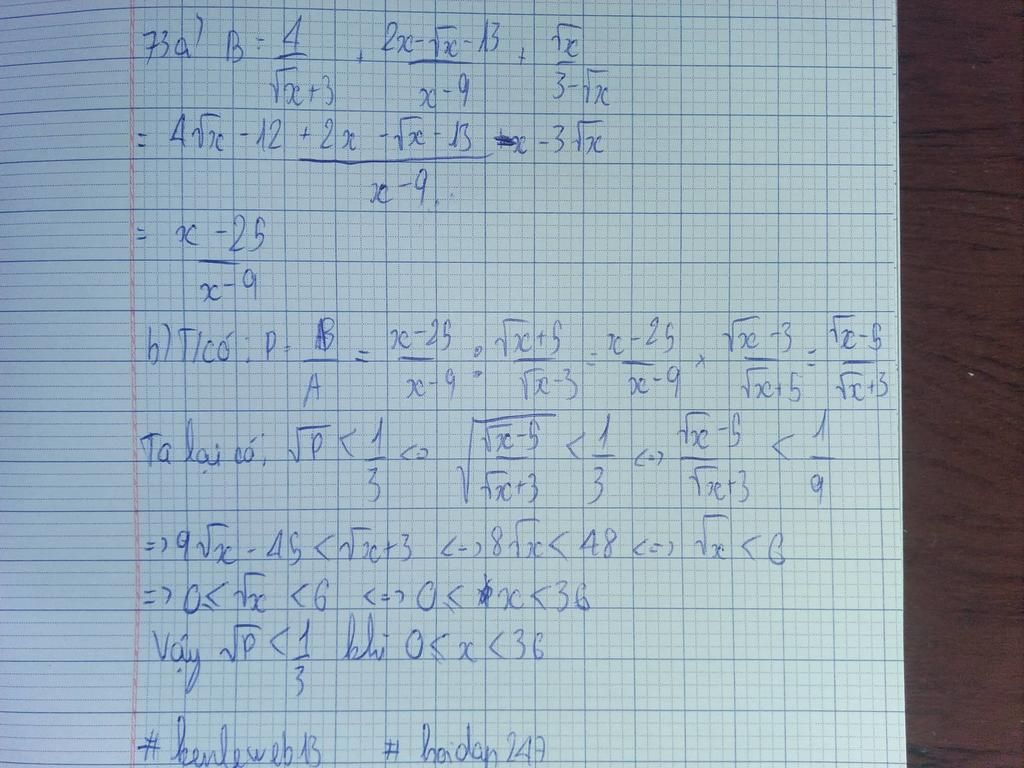 73a) B = 4/(√x+3) + (2x-√x-13)/(x-9) + √x/(3-√x)
= (4√x - 12 + 2x - √x - 13 - x - 3√x)/(x-9)
= (x-25)/(x-9)
b) T/có: P = B/A = (x-25)/(x-9) : (√x+5)/(√x-3) = (x-25)/(x-9) × (√x-3)/(√x+5) = (√x-5)/(√x+3)
Ta lại có: √P < 1/3 <=> √((√x-5)/(√x+3)) < 1/3 <=> (√x-5)/(√x+3) < 1/9
=> 9√x - 45 < √x+3 <=> 8√x < 48 <=> √x < 6
=> 0 ≤ √x < 6 <=> 0 ≤ x < 36
Vậy √P < 1/3 khi 0 ≤ x < 36
# # hoidap247